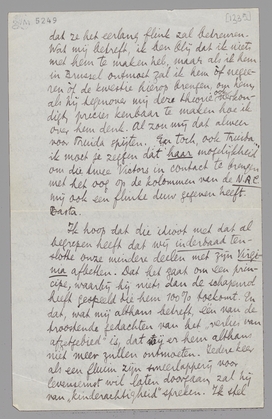 5245
dat ze het eerlang flink zal betreuren.
Wat mij betreft, ik ben blij dat ik niets
met hem te maken heb, maar als ik hem
in Brussel ontmoet zal ik hem of nege-
ren of de kwestie hierop brengen, om hem,
als hij tegenover mij deze theorie
precies kenbaar te maken hoe ik
over hem denk. Al zou mij dat alweer
voor Truida spijten. En toch, ook Truida
ik moet je zeggen dat haar mogelijkheid
om die twee Victors in contact te brengen
met het oog op de kolommen van de N.A.C.
mij ook een flinke duw gegeven heeft.
Basta.
Ik hoop dat die idioot met dat al
begrepen heeft dat wij inderdaad ten-
slotte onze mindere deelen met zijn
afketten. Dat het gaat om een prin-
cipe, waarbij hij niets dan de schapenrol
heeft gespeeld die hem 100% toekomt. En
dat, wat mij althans betreft, een van de
troostende gedachten van het "verlies van
afzetgebied" is, dat wij er hem althans
niet meer zullen ontmoeten. Iedere keer
als een fluim zijn smeerlapperij voor
levensernst wil laten doorgaan zal hij
van "kinderachtigheid" spreken. Ik stel